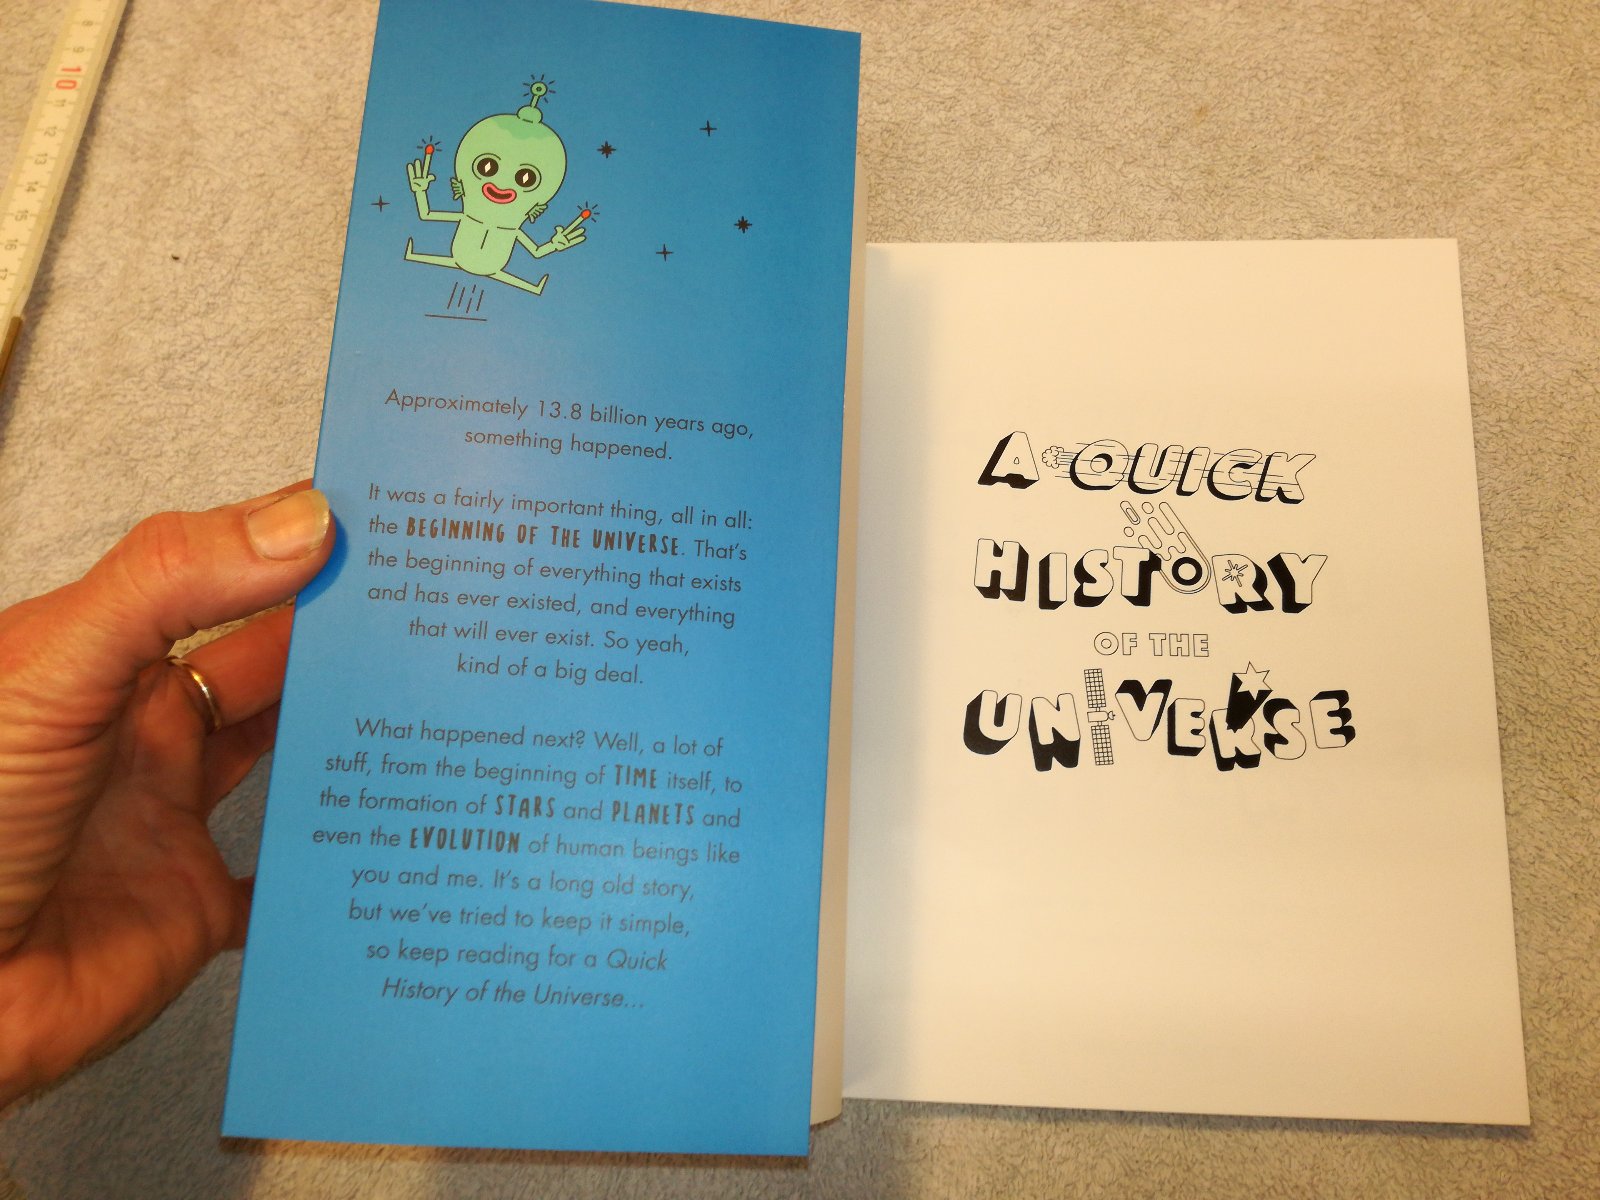 8
9
10
11
12
13
14
15
16
17
Approximately 13.8 billion years ago,
something happened.
It was a fairly important thing, all in all:
the BEGINNING OF THE UNIVERSE. That's
the beginning of everything that exists
and has ever existed, and everything
that will ever exist. So yeah,
kind of a big deal.
What happened next? Well, a lot of
stuff, from the beginning of TIME itself, to
the formation of STARS and PLANETS and
even the EVOLUTION of human beings like
you and me. It's a long old story,
but we've tried to keep it simple,
so keep reading for a Quick
History of the Universe...
A QUICK
HISTORY
OF THE
UNIVERSE